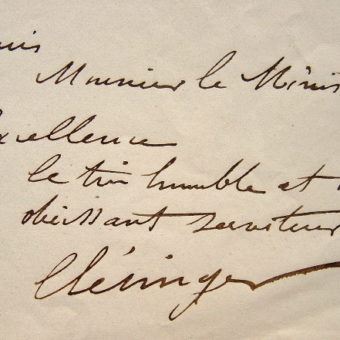 uis
Monsieur le Minis
xcellence
le très humble et
obéissant serviteur
Clésinger